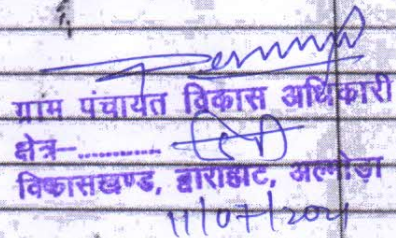 ग्राम पंचायत विकास अधिकारी
क्षेत्र-...........
विकासखण्ड, द्वाराहाट, अल्मोड़ा
11/07/2021